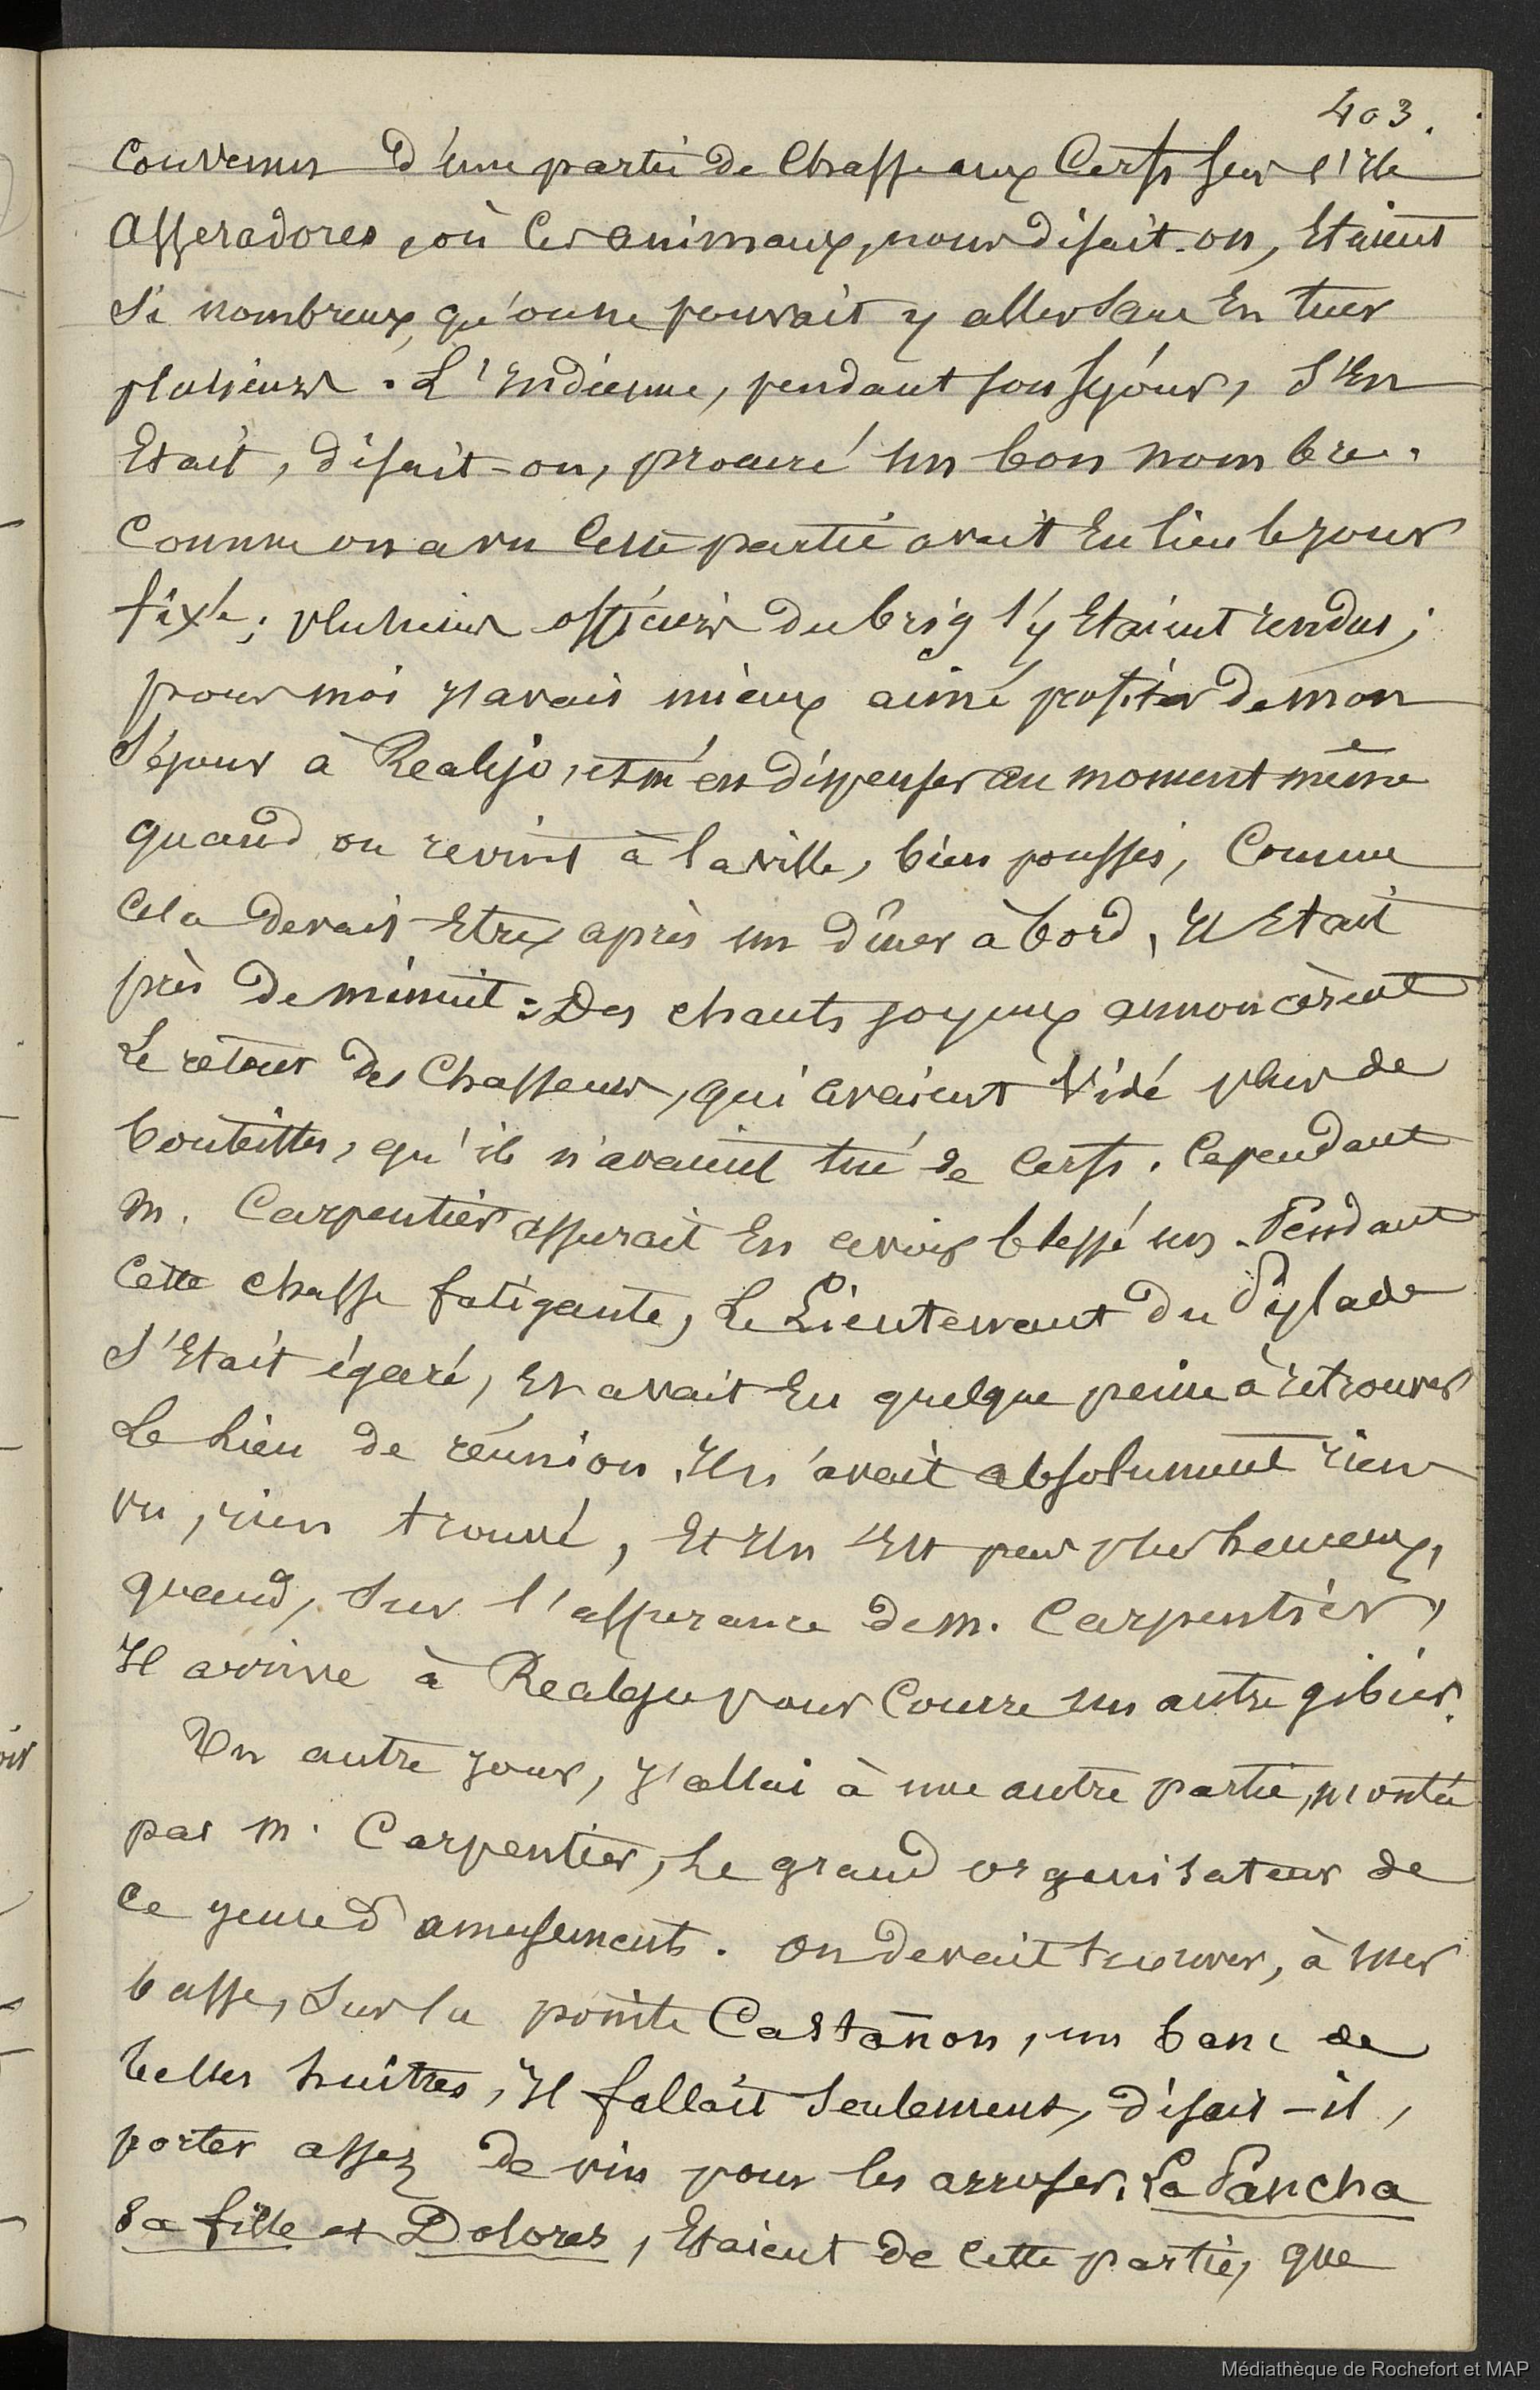 403.
convenus d'une partie de chasse aux cerfs sur l'Ile
Asseradores, où ces animaux, nous disait-on, Etaient
si nombreux, qu'on ne pouvait y aller sans En tuer
plusieurs. L'Indienne, pendant son séjour, s'En
Etait, disait-on, procuré un bon nombre.
Comme on a vu Cette partie avait Eu lieu le jour
fixé; plusieurs officiers du brig s'y Etaient rendus;
pour moi J'avais mieux aimé profiter de mon
séjour à Realejo, et m'en dispenser au moment même
quand on revint à la ville, bien poussés, Comme
cela devait Etre, après un dîner à bord, Il Etait
près de minuit: Des chants joyeux annoncèrent
Le retour des Chasseurs, qui avaient Vidé plus de
bouteilles, qu'ils n'avaient tué de Cerfs. Cependant
M. Carpentier assurait En avoir blessé un. Pendant
Cette chasse fatigante, Le Lieutenant du Pylade
s'Etait égaré, Et avait Eu quelque peine à retrouver
Le Lieu de réunion. Il n'avait absolument rien
vu, rien trouvé, Et Il n'Est pas plus heureux,
quand, Sur l'assurance de M. Carpentier,
Il arrive à Realejo pour Courre un autre gibier.
Un autre jour, J'allai à une autre partie, montée
par M. Carpentier, Le grand organisateur de
Ce genre d'amusements. On devait trouver, à mer
basse, Sur la pointe Castañon, un banc de
belles huîtres, Il fallait seulement, disait-il,
porter assez de vin pour les arroser. La Pancha
sa fille et Dolores, Etaient de cette partie, que
Médiathèque de Rochefort et MAP